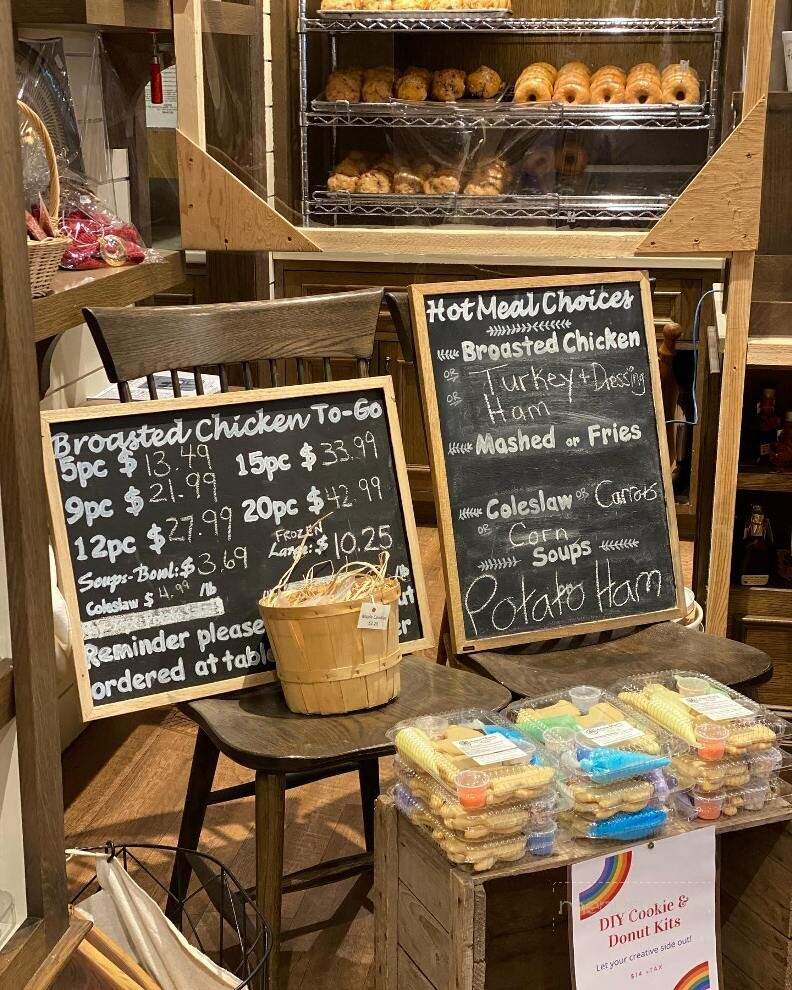 Broasted Chicken To-Go
5pc $ 13.49 15pc $ 33.99
9pc $ 21.99 20pc $ 42.99
12pc $ 27.99 FROZEN
Large: $ 10.25
Soups-Bowl: $ 3.69
Coleslaw $ 4.99 /lb /lb
Reminder please
ordered at table
Maple Candies
Hot Meal Choices
Broasted Chicken
OR Turkey + Dressing
OR Ham
Mashed or Fries
Coleslaw OR Carrots
OR Corn
Soups
Potato Ham
DIY Cookie &
Donut Kits
Let your creative side out!
$14 +TAX